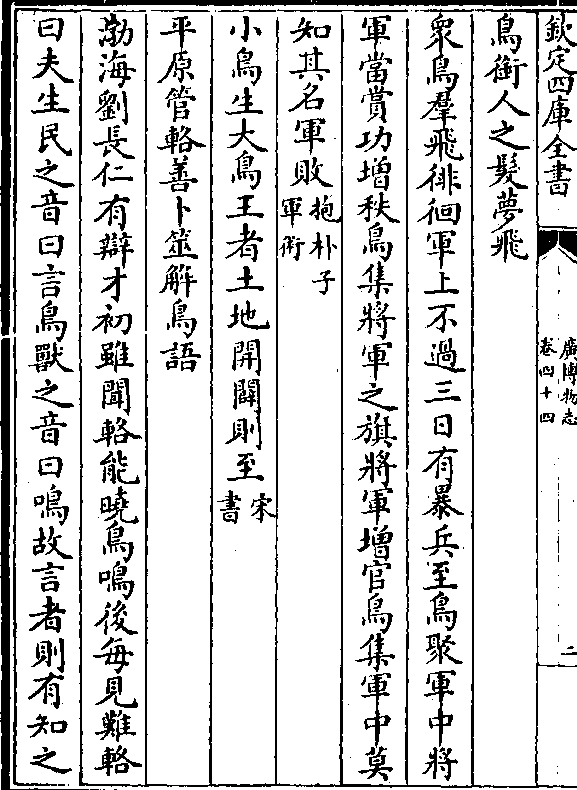 欽定四庫全書
廣博物志
卷四十四
二
鳥銜人之髮夢飛
衆鳥羣飛徘徊軍上不過三日有暴兵至鳥聚軍中將
軍當賞功增秩鳥集將軍之旗將軍增官鳥集軍中莫
知其名軍敗抱朴子軍術
小鳥生大鳥王者土地開闢則至宋書
平原管輅善卜筮解鳥語
渤海劉長仁有辯才初雖聞輅能曉鳥鳴後每見難輅
曰夫生民之音曰言鳥獸之音曰鳴故言者則有知之